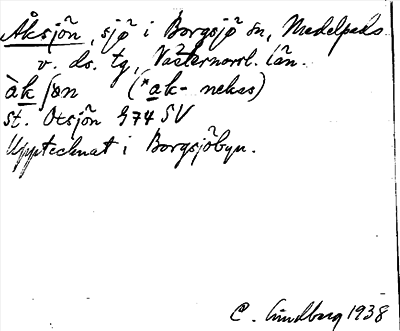 Åksjön, sjö i Borgsjö sn, Medelpads
v. ds. tg, Västernorrl. län.
àk ʃøn (*ak- nekas)
st. Otsjön G74 SV
Upptecknat i Borgsjöbyn.
C. Lindberg 1938